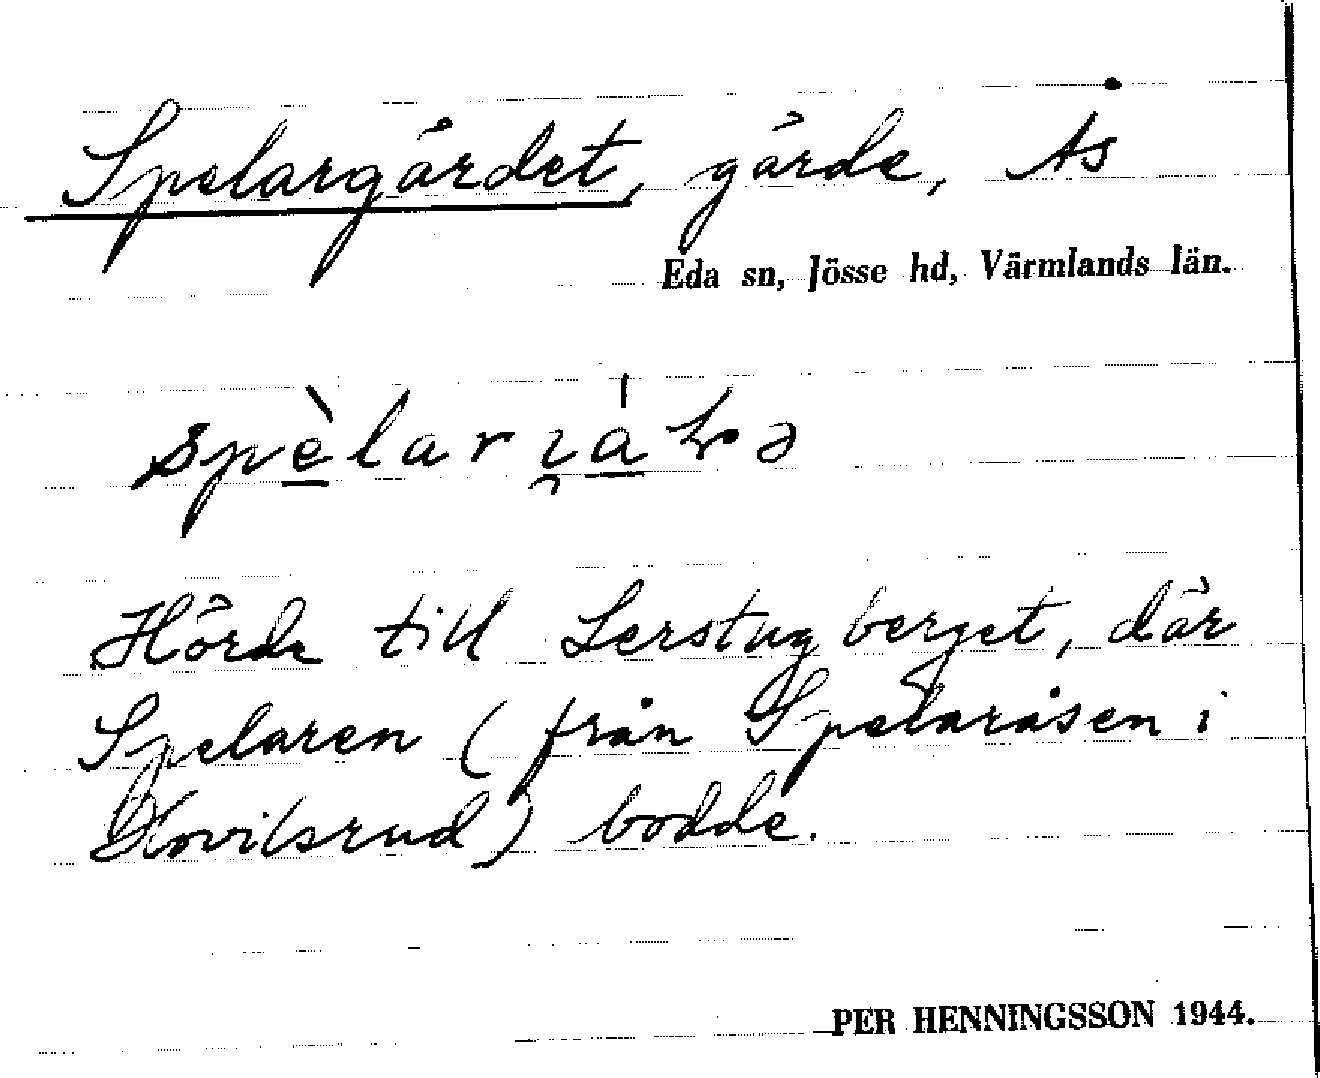 Spelargärdet, gärde, Ås
Eda sn, Jösse hd, Värmlands län.
Hörde till Lerstugberget, där
Spelaren (från Spelaråsen i
Hovilsrud) bodde.
PER HENNINGSSON 1944.